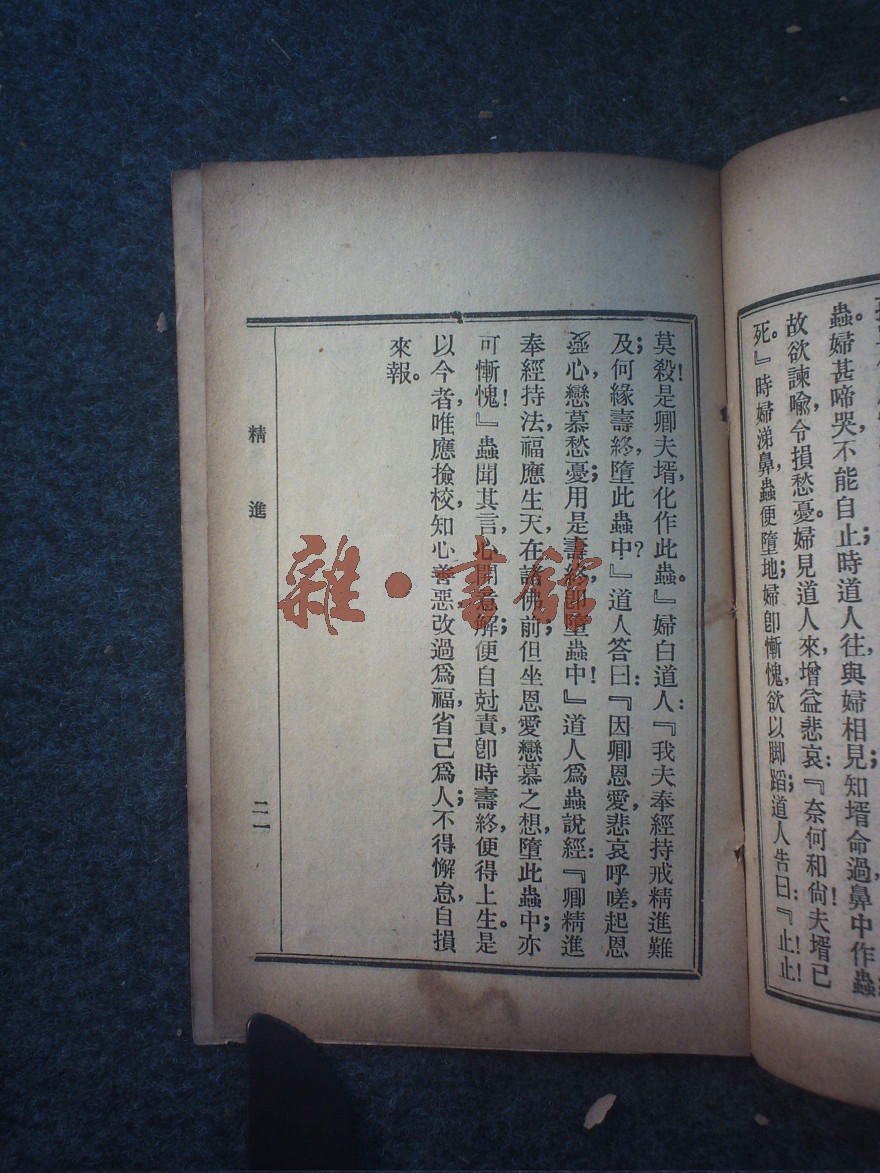 蟲。婦甚啼哭,不能自止;時道人往與婦相見,知壻命過,鼻中作蟲,
故欲諫喻,令損愁憂。婦見道人來,增益悲哀:『奈何和尙!夫壻已
死。』時婦涕鼻,蟲便墮地;婦卽慚愧,欲以脚蹈;道人告曰:『止!止!
莫殺!是卿夫壻,化作此蟲。』婦白道人:『我夫奉經持戒,精進難
及;何緣壽終,墮此蟲中?』道人答曰:『因卿恩愛,悲哀呼嗟,起恩
愛心,戀慕愁憂;用是壽終,卽墮蟲中!』道人爲蟲說經:『卿精進
奉經持法,福應生天,在諸佛前;但坐恩愛戀慕之想,墮此蟲中;亦
可慚愧!』蟲聞其言,心開意解;便自尅責,卽時壽終,便得上生。是
以今者,唯應撿校,知心善惡,改過爲福,省己爲人;不得懈怠,自損
來報。
精進
二一
雜·書館